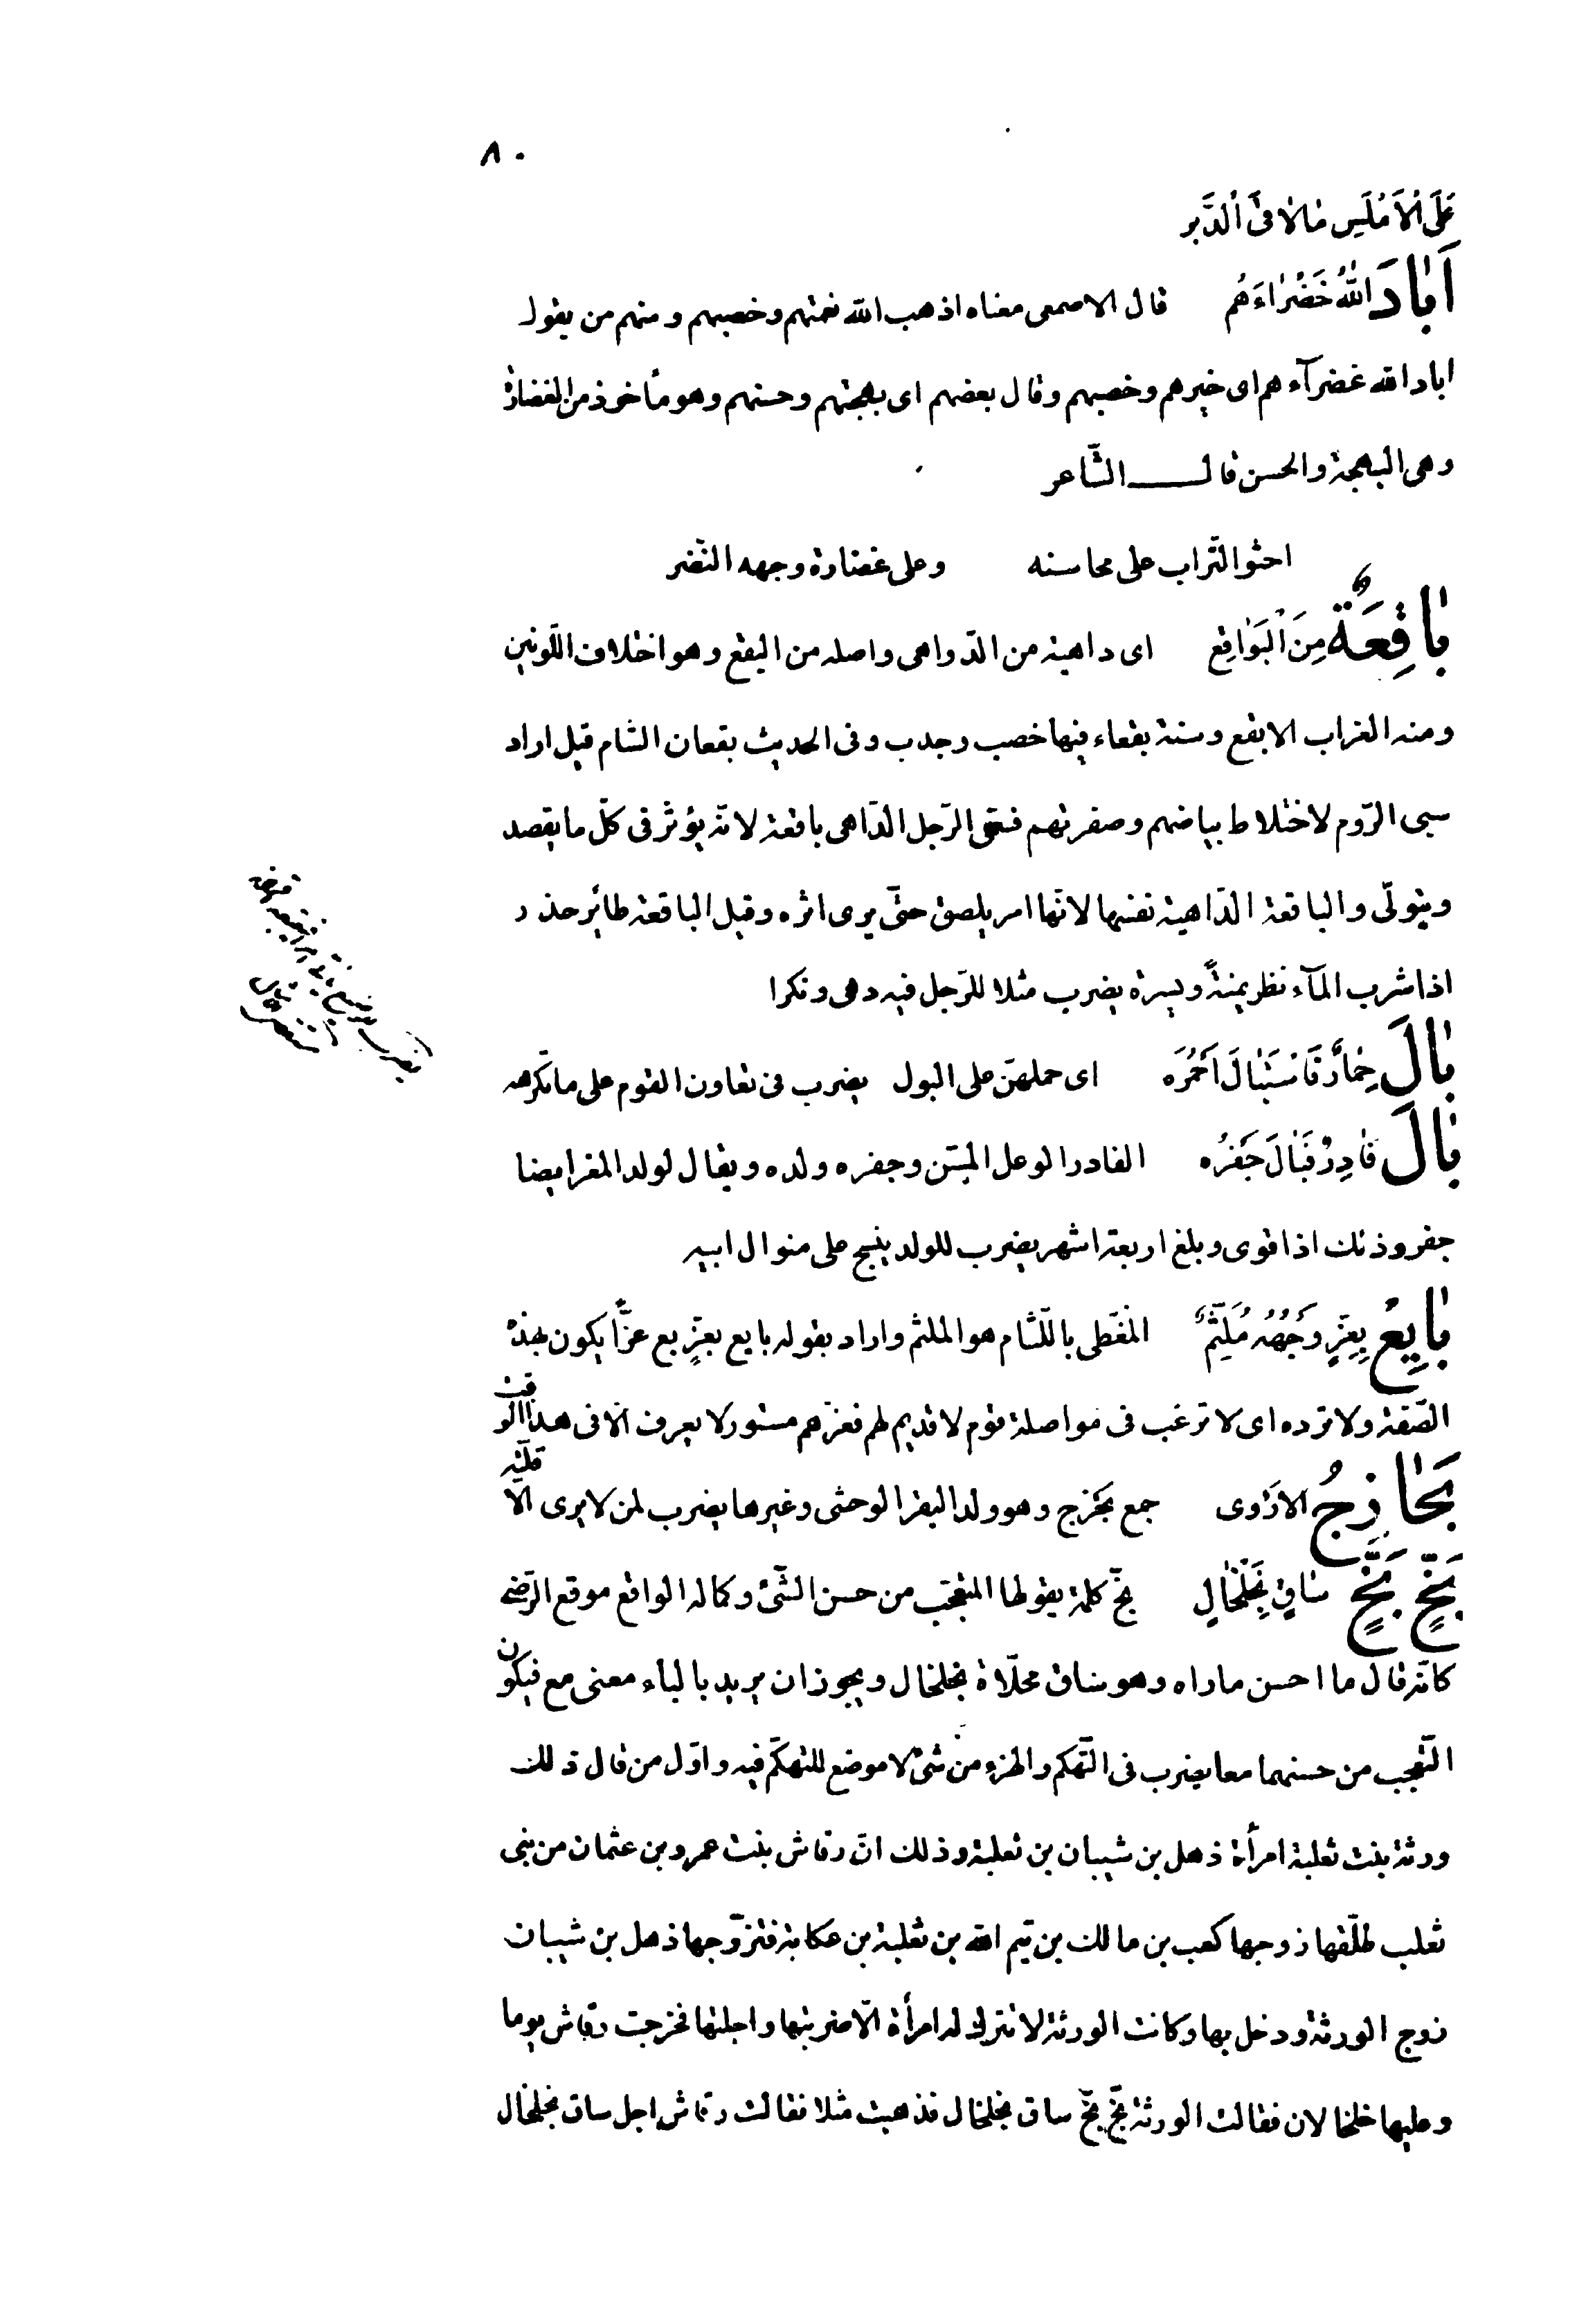 ٨٠
عَلَى الْاَمْلَسِ مَالَاقَى الدَّبِر
اَبَادَ اللّٰهُ خَضْرَاءَهُم قال الاصمعى معناه اذهب الله نعمتهم وخصبهم ومنهم من يقول
اباد الله غضرآءهم اى خيرهم وخصبهم وقال بعضهم اى بهجتهم وحسنهم وهو مأخوذ من الغضارة
وهى البهجة والحسن قال الشّاعر
احثوا التّراب على محاسنه وعلى غضارة وجهه النّضر
بَاقِعَةٌ مِنَ الْبَوَاقِع اى داهية من الدّواهى واصله من البقع وهو اختلاف اللّونين
ومنه الغراب الابقع وسنة بقعاء فيها خصب وجدب وفى الحديث بقعان الشام قيل اراد
سبى الرّوم لاختلاط بياضهم وصفرتهم فسمّى الرّجل الدّاهى باقعة لانّه يؤثّر فى كلّ ما يقصد
ويتولّى والباقعة الدّاهية نفسها لانّها امر يلصق حتّى يرى اثره وقيل الباقعة طائر حذر
اذا شرب المآء نظر يمنةً ويسرة يضرب مثلا للرّجل فيه دهى ونكرا
بَالَ حِمَارٌ فَاسْتَبَالَ اَحْمُرَه اى حملهنّ على البول يضرب فى تعاون القوم على ما تكرهه
بَالَ فَادِرٌ فَبَالَ جَفْرُه الفادر الوعل المسّن وجفره ولده ويقال لولد المعز ايضا
جفر وذلك اذا قوى وبلغ اربعة اشهر يضرب للولد ينسج على منوال ابيه
بَايِعْ بِعِزٍّ وَجْهُهُ مُلَثَّمٌ المغطى باللّثام هو الملثم واراد بقوله بايع بعزّ بع عزًّا يكون بهذه
الصّفة ولا ترده اى لا ترغب فى مواصلة قوم لا قديم لهم فعزّهم مستور لا يعرف الّا فى هذا الوقت
بَحَازِجُ الاَرْوى جمع بحزج وهو ولد البقر الوحشى وغيرها يضرب لمن لا يرى الّا قلّته
بَخٍّ بَخٍّ سَاقٍ بِخَلْخَالٍ بخّ كلمة يقولها المتعجّب من حسن الشّئ وكماله الواقع موقع الرّضى
كانّه قال ما احسن ما اراه وهو ساق محلّاة بخلخال ويجوز ان يريد بالباء معنى مع فيكون
التّعجب من حسنهما معا يضرب فى التّهكم والهزء من شئ لا موضع للتهكّم فيه واوّل من قال ذلك
ورثة بنت ثعلبة امرأة ذهل بن شيبان بن ثعلبة وذلك انّ رقاش بنت عمرو بن عثمان من بنى
ثعلب طلّقها زوجها كعب بن مالك بن تيم الله بن ثعلبة بن عكابة فتزوّجها ذهل بن شيبان
زوج الورثة ودخل بها وكانت الورثة لا تترك له امرأة الّا ضربتها واجلتها فخرجت رقاش يوما
وعليها خلخالان فقالت الورثة بخّ بخّ ساق بخلخال فذهبت مثلا فقالت رقاش اجل ساق بخلخال